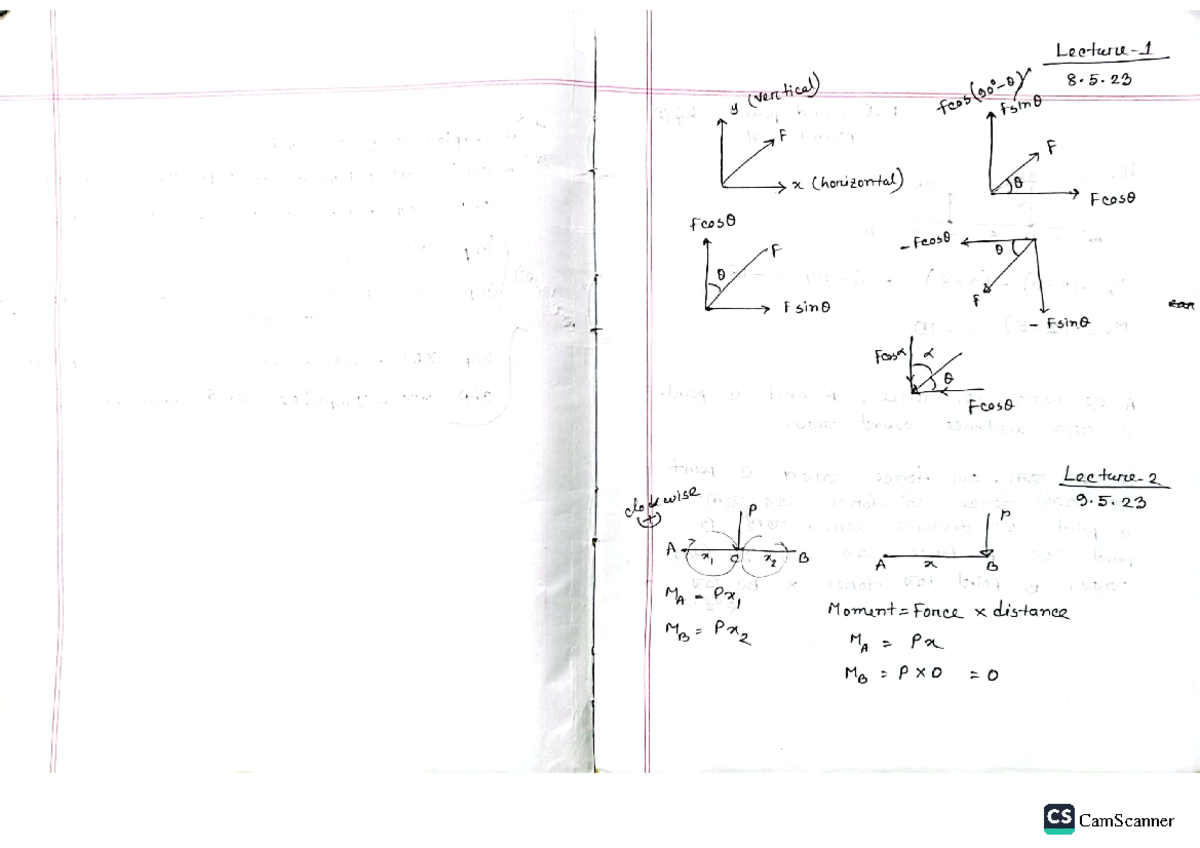 Lecture-1
8.5.23
y (vertical)
F
x (horizontal)
Fcos(90°-θ)
Fsinθ
F
θ
Fcosθ
Fcosθ
θ
F
Fsinθ
-Fcosθ
θ
F
- Fsinθ
Fcosα
α
θ
Fcosθ
Lecture-2
9.5.23
clockwise
+
P
A x₁ C x₂ B
M_A = Px₁
M_B = Px₂
P
A x B
Moment = Force × distance
M_A = Px
M_B = P×0 = 0
CS CamScanner